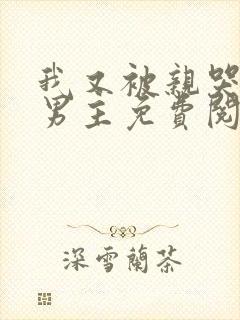 我又被親哭
男主免費閱
深雪蘭茶